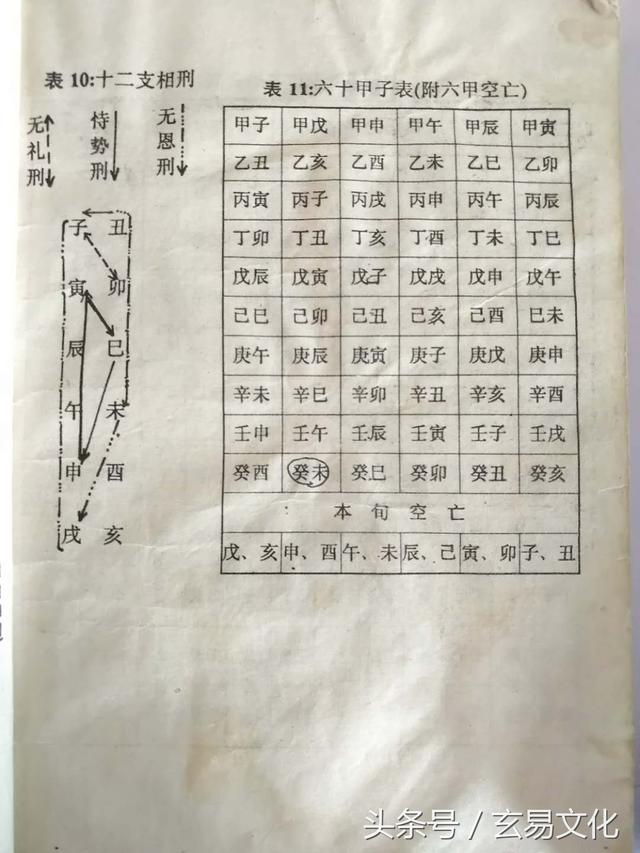 表10:十二支相刑
无礼刑
恃势刑
无恩刑
子 丑
寅 卯
辰 巳
午 未
申 酉
戌 亥
表11:六十甲子表(附六甲空亡)
甲子 甲戊 甲申 甲午 甲辰 甲寅
乙丑 乙亥 乙酉 乙未 乙巳 乙卯
丙寅 丙子 丙戌 丙申 丙午 丙辰
丁卯 丁丑 丁亥 丁酉 丁未 丁巳
戊辰 戊寅 戊子 戊戌 戊申 戊午
己巳 己卯 己丑 己亥 己酉 巳未
庚午 庚辰 庚寅 庚子 庚戊 庚申
辛未 辛巳 辛卯 辛丑 辛亥 辛酉
壬申 壬午 壬辰 壬寅 壬子 壬戌
癸酉 癸未 癸巳 癸卯 癸丑 癸亥
本旬空亡
戊、亥 申、酉 午、未 辰、己 寅、卯 子、丑
头条号 / 玄易文化